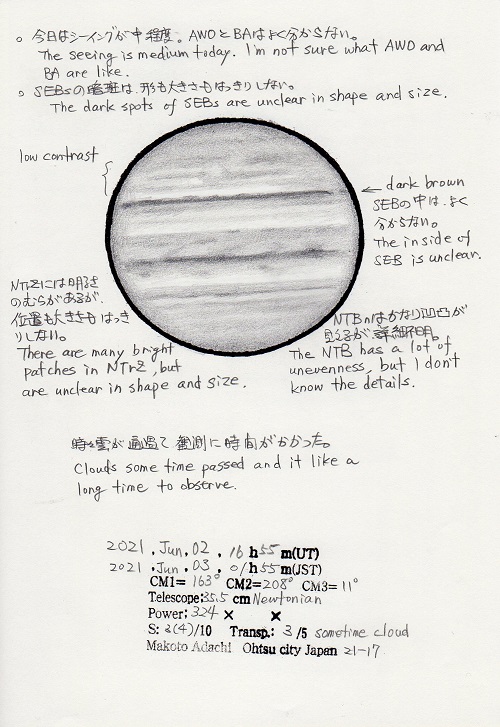 。今日はシーイングが中程度。AWOとBAはよく分からない。
The seeing is medium today. I'm not sure what AWO and
BA are like.
。SEBsの暗斑は、形も大きさもはっきりしない。
The dark spots of SEBs are unclear in shape and size.
low contrast
← dark brown
SEBの中は、よく
分からない。
The inside of
SEB is unclear.
NTrZには明るさ
のむらがあるが、
位置も大きさもはっき
りしない。
There are many bright
patches in NTrZ, but
are unclear in shape and size.
NTBnはかなり凹凸が
見えるが、詳細不明。
The NTB has a lot of
unevenness, but I don't
know the details.
時々雲が通過して観測に時間がかかった。
Clouds some time passed and it like a
long time to observe.
2021 . Jun. 02 . 16 h 55 m(UT)
2021 . Jun. 03 . 01 h 55 m(JST)
CM1= 163° CM2= 208° CM3= 11°
Telescope: 35.5 cm Newtonian
Power: 324 × ×
S: 3(4)/10 Transp.: 3 /5 sometime cloud
Makoto Adachi Ohtsu city Japan 21-17